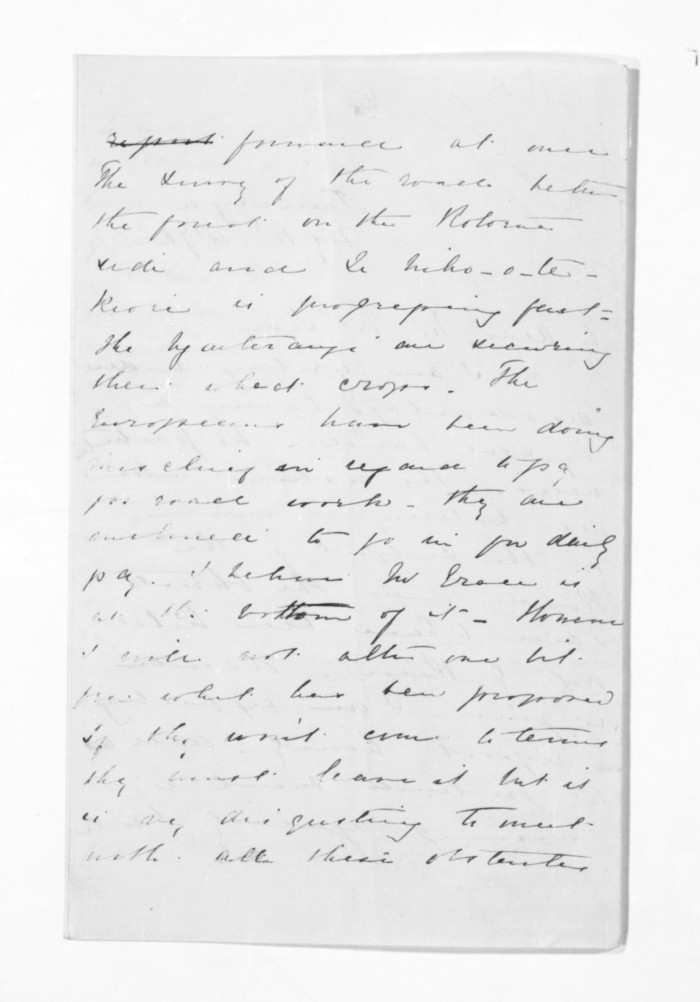 ~~report~~ forward at once
The survey of the road betwn
the forest on the Rotorua
side and Te Niho-o-te-
Kiore is progressing fast-
The Ngaiterangi are securing
their wheat crops. The
Europeans have been doing
mischief in regard to pay
for road work - they are
inclined to go in for daily
pay. I believe Mr Grace is
at the bottom of it - However
I will not alter one bit
from what has been proposed
if they won't come to terms
they must leave it but it
is very disgusting to meet
with all these obstacles